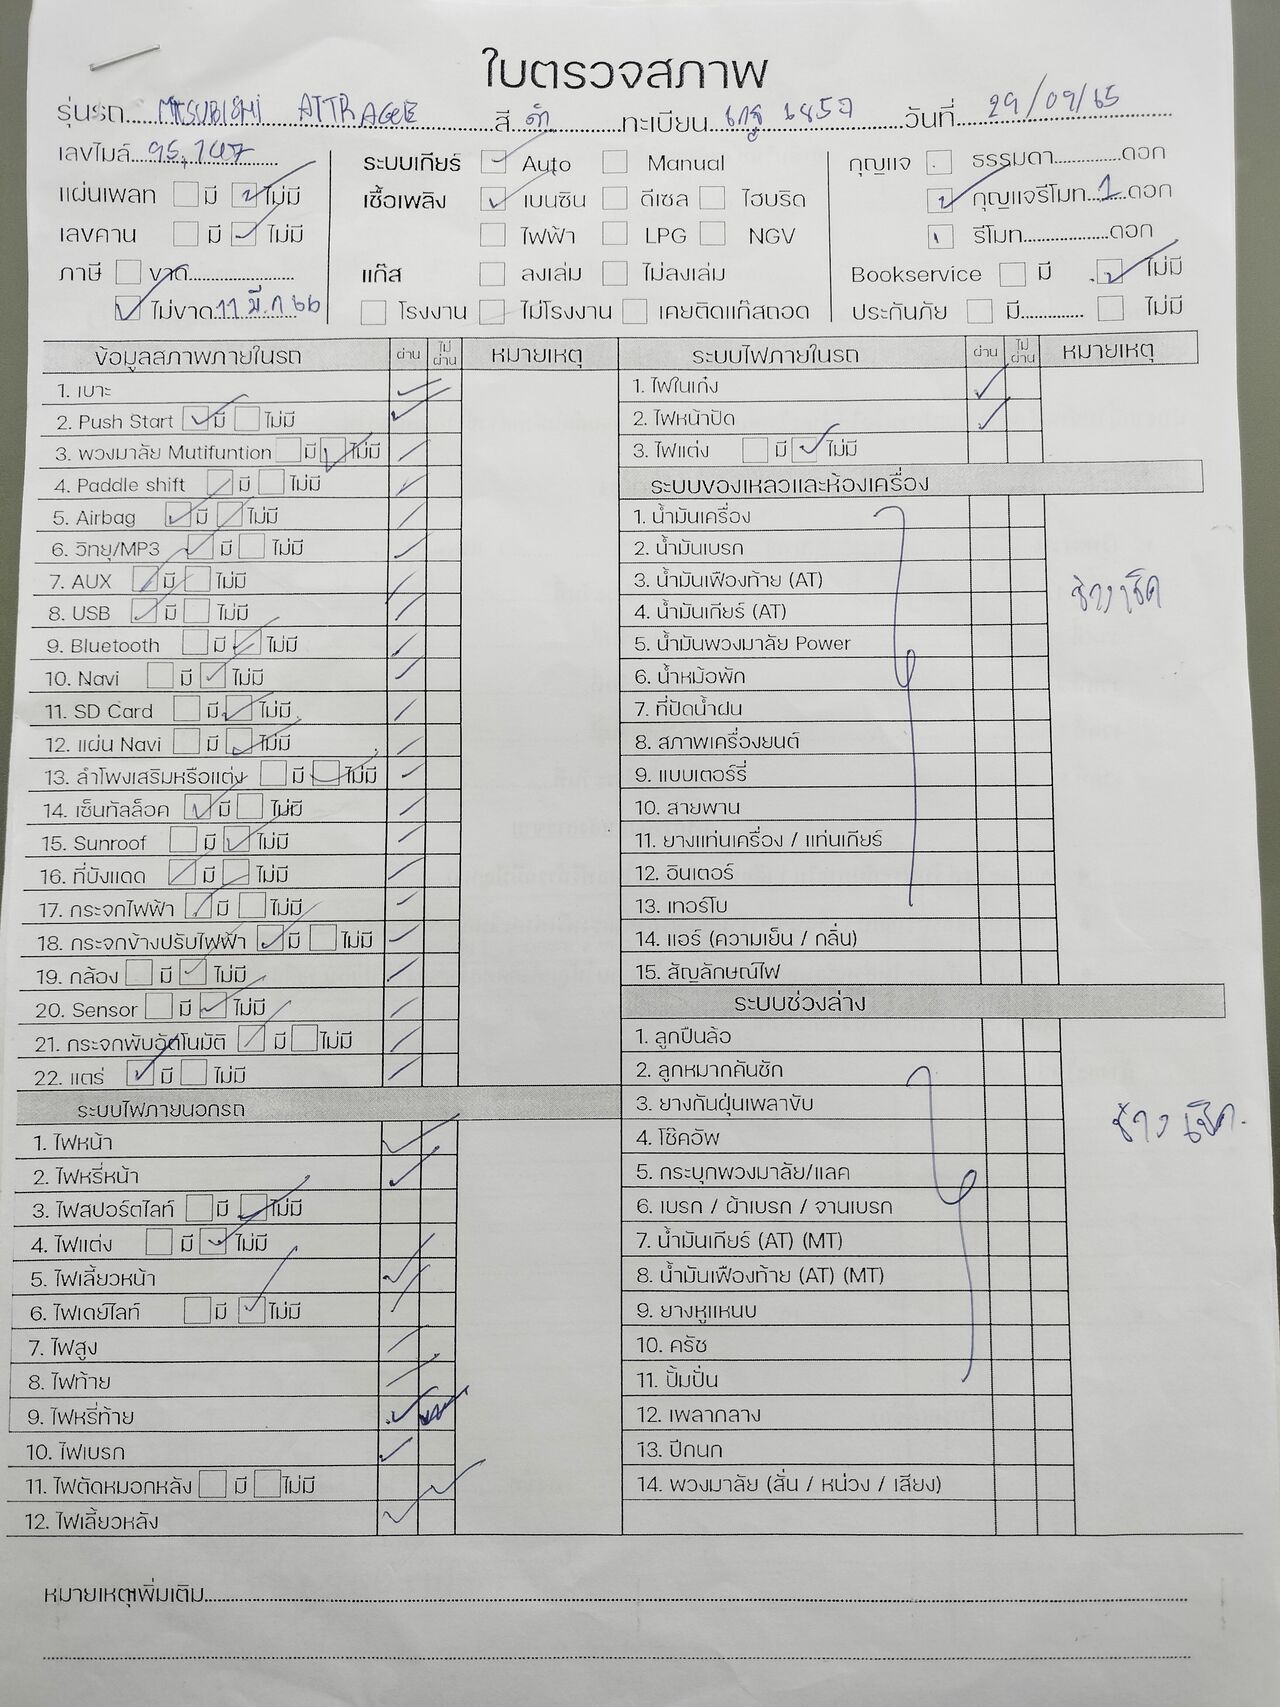 ใบตรวจสภาพ
รุ่นรถ MITSUBISHI ATTRAGE สี ดำ ทะเบียน วันที่ 29/09/65
เลขไมล์ 95,747 ระบบเกียร์ Auto Manual กุญแจ ธรรมดา ดอก
แผ่นเพลท มี ไม่มี เชื้อเพลิง เบนซิน ดีเซล ไฮบริด กุญแจรีโมท 1 ดอก
เลขคาน มี ไม่มี ไฟฟ้า LPG NGV รีโมท ดอก
ภาษี ขาด แก๊ส ลงเล่ม ไม่ลงเล่ม Bookservice มี ไม่มี
ไม่ขาด 11 มี.ค 66 โรงงาน ไม่โรงงาน เคยติดแก๊สถอด ประกันภัย มี ไม่มี
ข้อมูลสภาพภายในรถ ผ่าน ไม่ผ่าน หมายเหตุ
1. เบาะ
2. Push Start มี ไม่มี
3. พวงมาลัย Mutifuntion มี ไม่มี
4. Paddle shift มี ไม่มี
5. Airbag มี ไม่มี
6. วิทยุ/MP3 มี ไม่มี
7. AUX มี ไม่มี
8. USB มี ไม่มี
9. Bluetooth มี ไม่มี
10. Navi มี ไม่มี
11. SD Card มี ไม่มี
12. แผ่น Navi มี ไม่มี
13. ลำโพงเสริมหรือแต่ง มี ไม่มี
14. เซ็นทัลล็อค มี ไม่มี
15. Sunroof มี ไม่มี
16. ที่บังแดด มี ไม่มี
17. กระจกไฟฟ้า มี ไม่มี
18. กระจกข้างปรับไฟฟ้า มี ไม่มี
19. กล้อง มี ไม่มี
20. Sensor มี ไม่มี
21. กระจกพับอัตโนมัติ มี ไม่มี
22. แตร่ มี ไม่มี
ระบบไฟภายนอกรถ
1. ไฟหน้า
2. ไฟหรี่หน้า
3. ไฟสปอร์ตไลท์ มี ไม่มี
4. ไฟแต่ง มี ไม่มี
5. ไฟเลี้ยวหน้า
6. ไฟเดย์ไลท์ มี ไม่มี
7. ไฟสูง
8. ไฟท้าย
9. ไฟหรี่ท้าย
10. ไฟเบรก
11. ไฟตัดหมอกหลัง มี ไม่มี
12. ไฟเลี้ยวหลัง
ระบบไฟภายในรถ ผ่าน ไม่ผ่าน หมายเหตุ
1. ไฟในเก๋ง
2. ไฟหน้าปัด
3. ไฟแต่ง มี ไม่มี
ระบบของเหลวและห้องเครื่อง
1. น้ำมันเครื่อง
2. น้ำมันเบรก
3. น้ำมันเฟืองท้าย (AT)
ช่างเช็ค
4. น้ำมันเกียร์ (AT)
5. น้ำมันพวงมาลัย Power
6. น้ำหม้อพัก
7. ที่ปัดน้ำฝน
8. สภาพเครื่องยนต์
9. แบบเตอร์รี่
10. สายพาน
11. ยางแท่นเครื่อง / แท่นเกียร์
12. อินเตอร์
13. เทอร์โบ
14. แอร์ (ความเย็น / กลิ่น)
15. สัญลักษณ์ไฟ
ระบบช่วงล่าง
1. ลูกปืนล้อ
2. ลูกหมากคันชัก
3. ยางกันฝุ่นเพลาขับ
ช่างเช็ค
4. โช๊คอัพ
5. กระบุกพวงมาลัย/แลค
6. เบรก / ผ้าเบรก / จานเบรก
7. น้ำมันเกียร์ (AT) (MT)
8. น้ำมันเฟืองท้าย (AT) (MT)
9. ยางหูแหนบ
10. ครัช
11. ปั้มปั่น
12. เพลากลาง
13. ปีกนก
14. พวงมาลัย (สั่น / หน่วง / เสียง)
หมายเหตุเพิ่มเติม